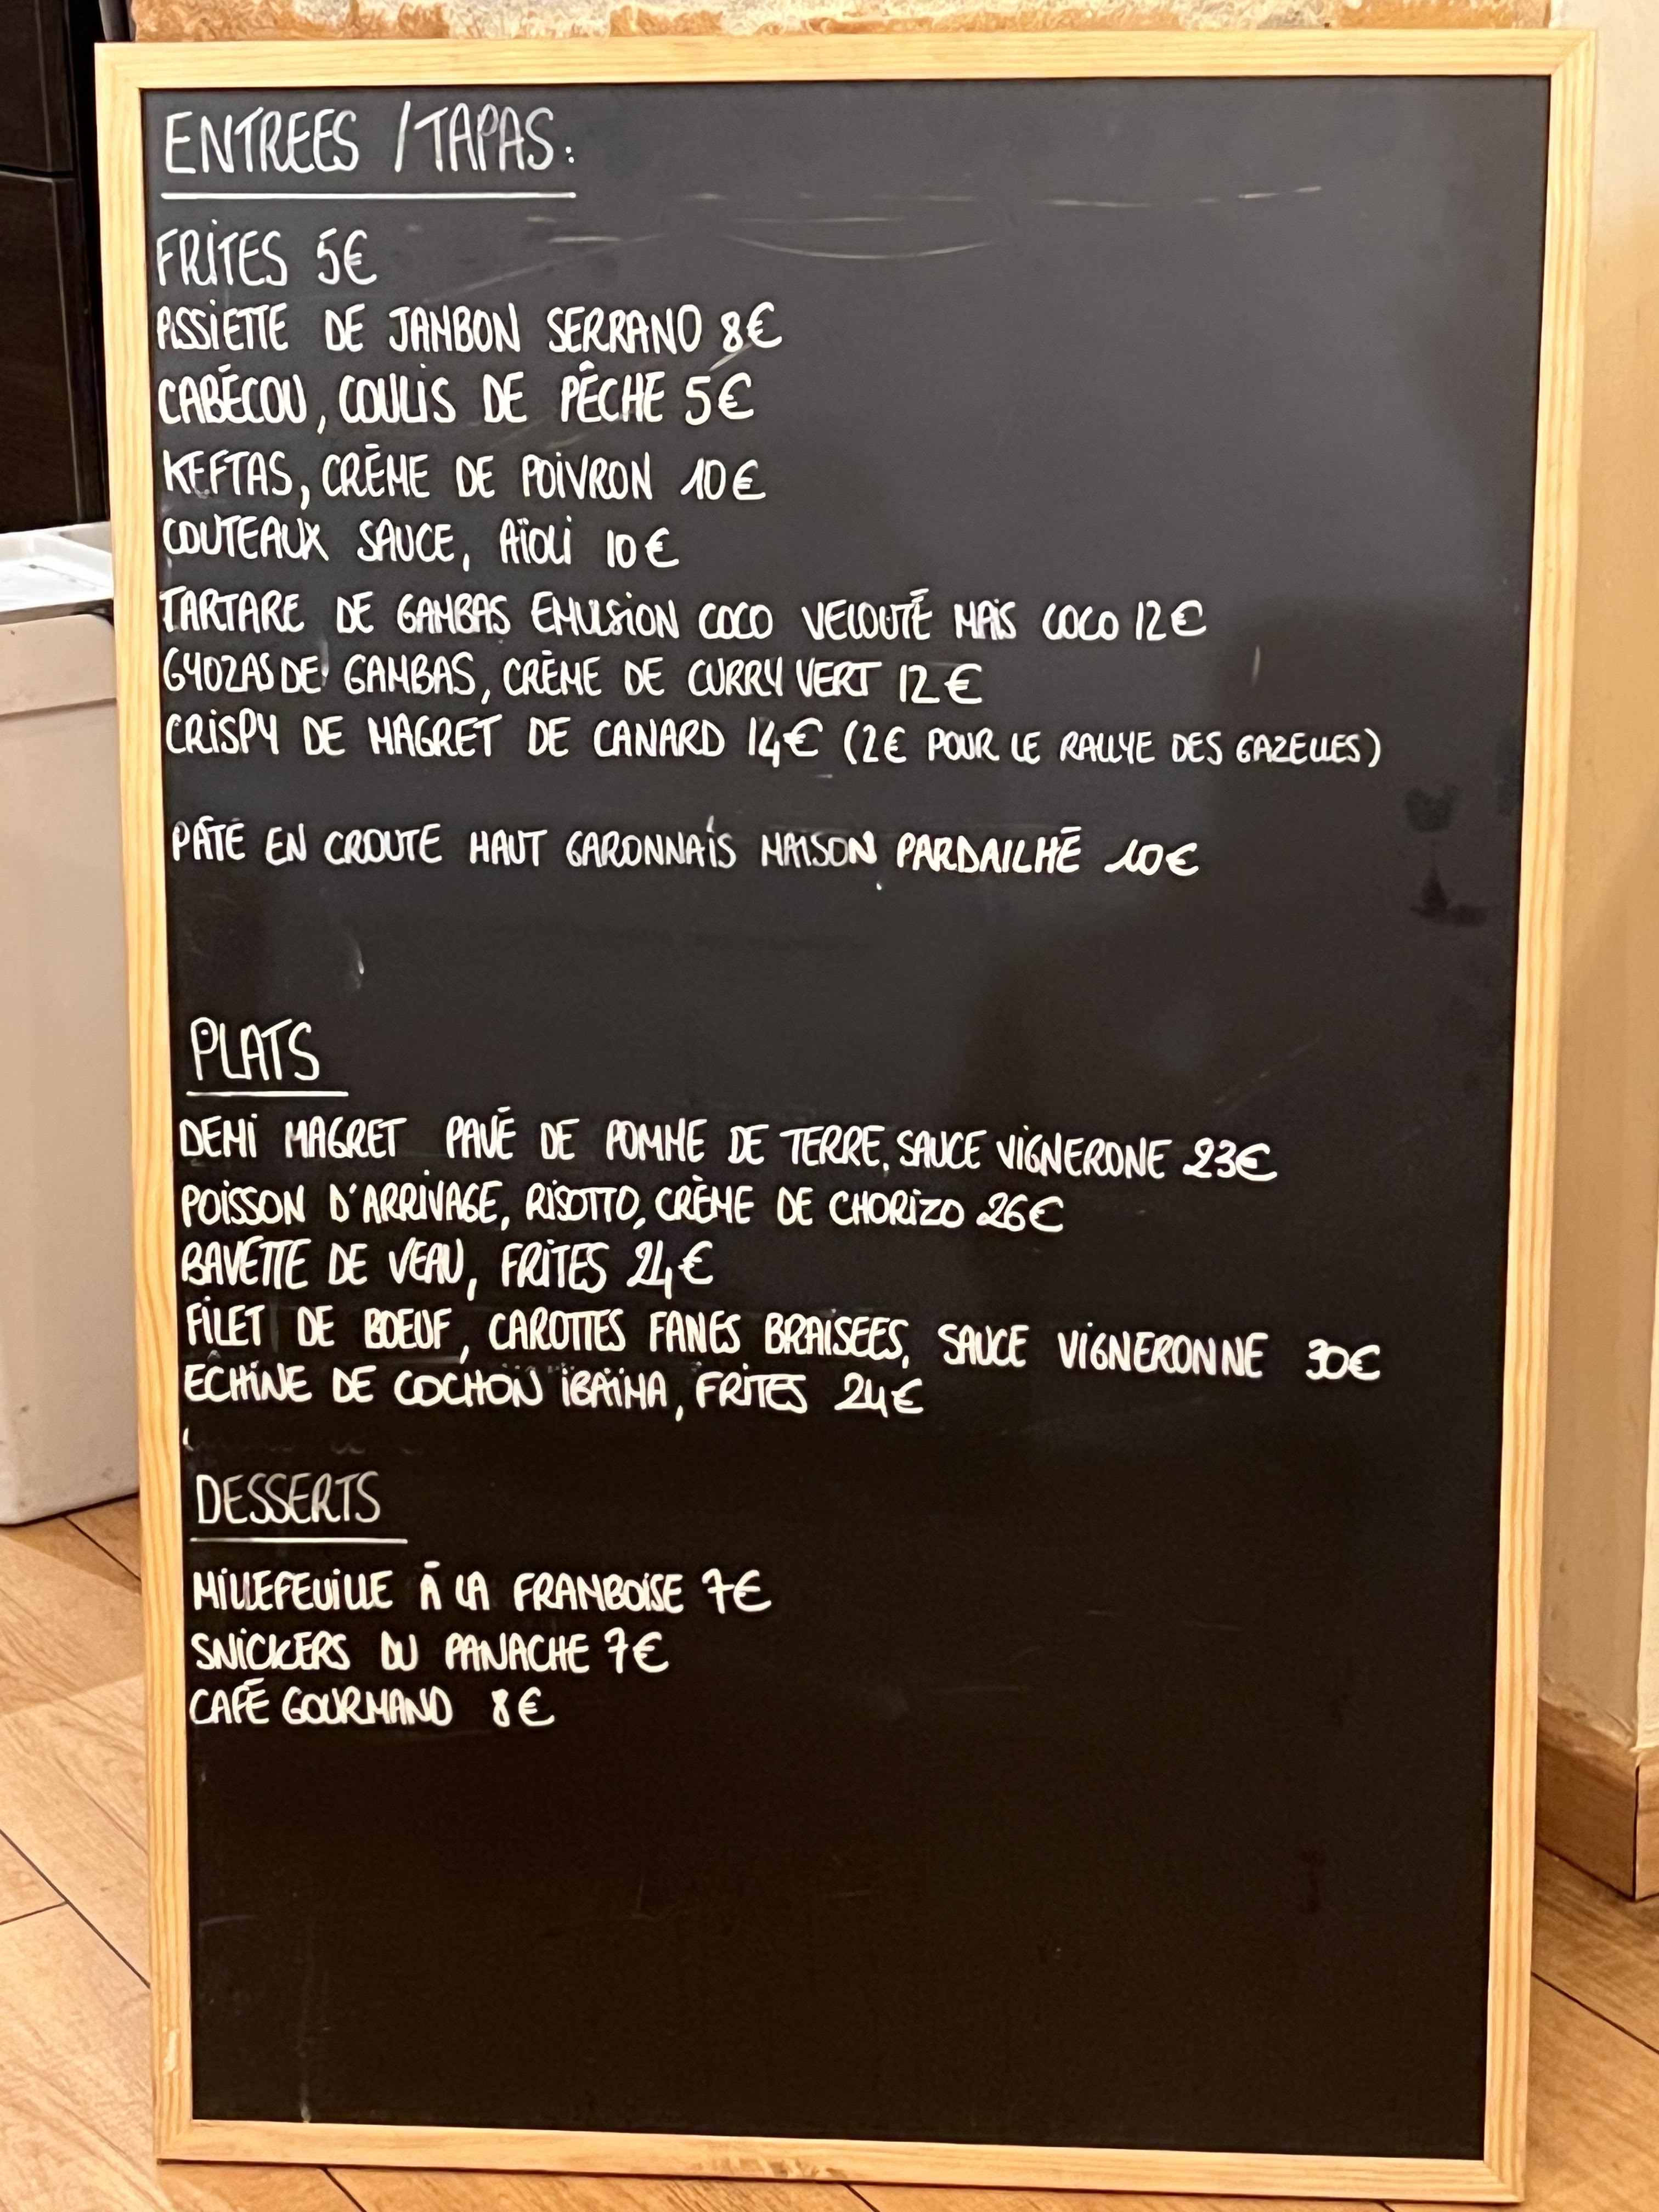 ENTREES / TAPAS:
FRITES 5€
ASSIETTE DE JAMBON SERRANO 8€
CABÉCOU, COULIS DE PÊCHE 5€
KEFTAS, CRÈME DE POIVRON 10€
COUTEAUX SAUCE, AÏOLI 10€
TARTARE DE GAMBAS EMULSION COCO VELOUTÉ MAIS COCO 12€
GYOZAS DE GAMBAS, CRÈME DE CURRY VERT 12€
CRISPY DE MAGRET DE CANARD 14€ (2€ POUR LE RALLYE DES GAZELLES)
PÂTÉ EN CROUTE HAUT GARONNAIS MAISON PARDAILHÉ 10€
PLATS
DEMI MAGRET PAVÉ DE POMME DE TERRE, SAUCE VIGNERONE 23€
POISSON D'ARRIVAGE, RISOTTO, CRÈME DE CHORIZO 26€
BAVETTE DE VEAU, FRITES 24€
FILET DE BOEUF, CAROTTES FANES BRAISEES, SAUCE VIGNERONNE 30€
ECHINE DE COCHON IBAÏMA, FRITES 24€
DESSERTS
MILLEFEUILLE À LA FRAMBOISE 7€
SNICKERS DU PANACHE 7€
CAFÉ GOURMAND 8€